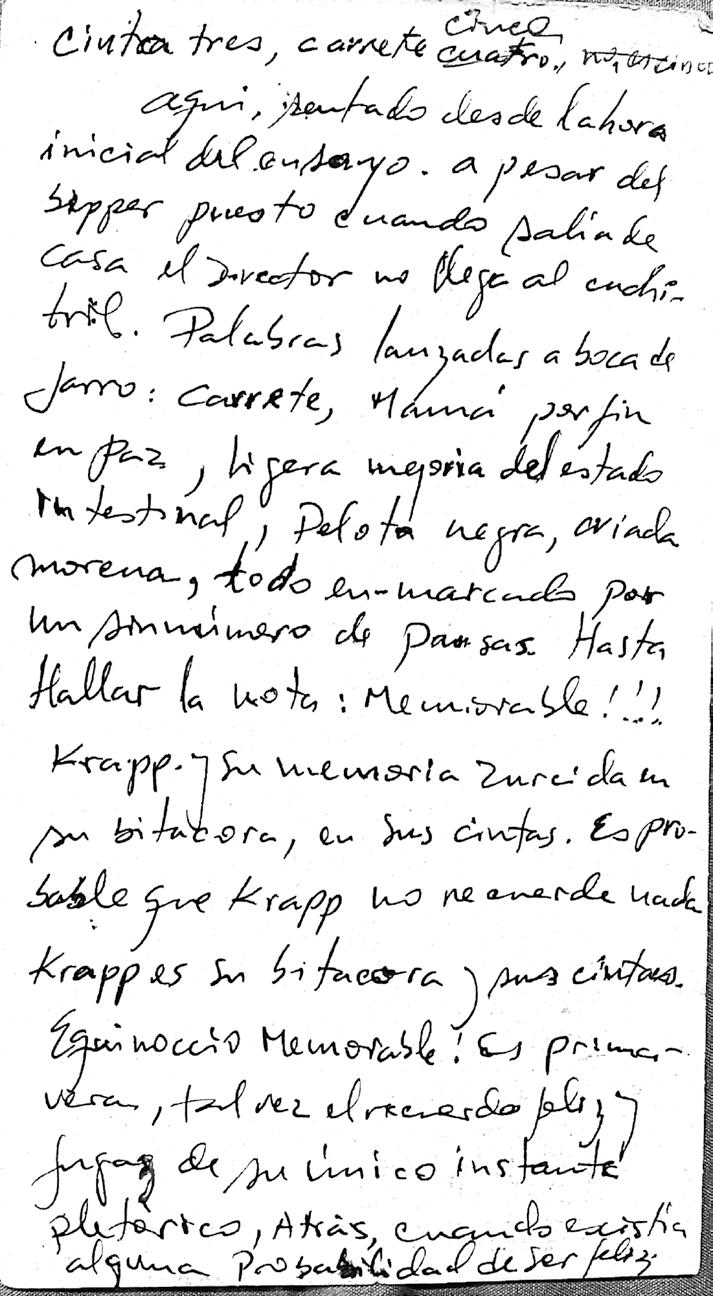 cinco
Cinta tres, carrete cuatro, no, es cinco
aqui, sentado desde la hora
inicial del ensayo. a pesar del
bipper puesto cuando salia de
casa el Director no llega al cuchi-
tril. Palabras lanzadas a boca de
Jarro: Carrete, Mamá por fin
en paz, ligera mejoria del estado
Intestinal, Pelota negra, criada
morena, todo en-marcado por
un sinnúmero de pausas. Hasta
Hallar la nota: Memorable!!!
Krapp. y su memoria zurcida en
su bitacora, en sus cintas. Es pro-
bable que Krapp no recuerde nada
Krapp es su bitacora y sus cintas.
Equinoccio Memorable! Es prima-
vera, tal vez el recuerdo feliz y
fugaz de su único instante
pletórico, Atrás, cuando existía
alguna Probabilidad de ser feliz.